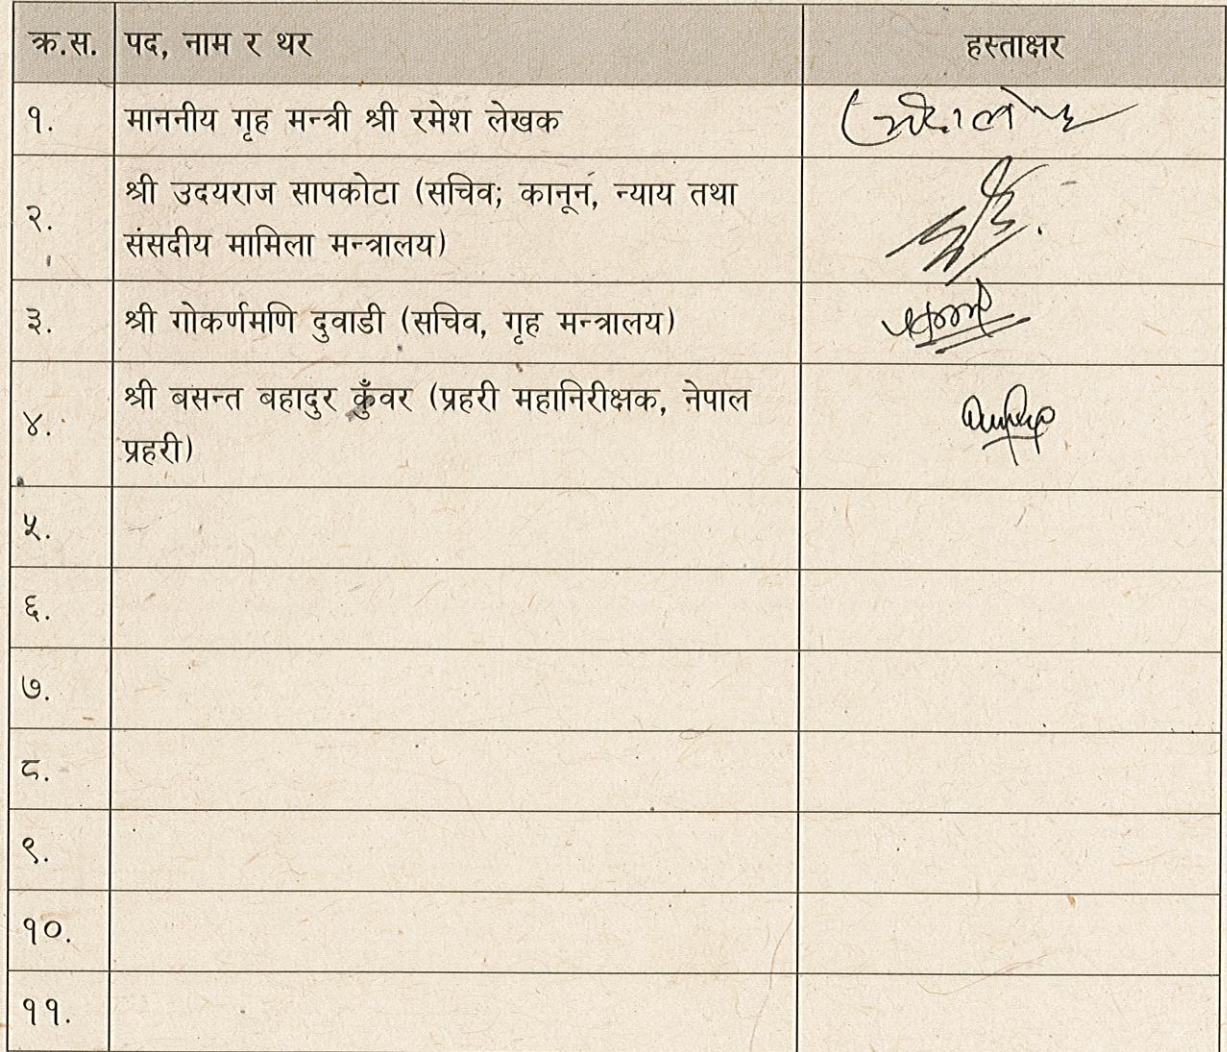 क्र.स. पद, नाम र थर हस्ताक्षर
१. माननीय गृह मन्त्री श्री रमेश लेखक
२. श्री उदयराज सापकोटा (सचिव; कानून, न्याय तथा
संसदीय मामिला मन्त्रालय)
३. श्री गोकर्णमणि दुवाडी (सचिव, गृह मन्त्रालय)
४. श्री बसन्त बहादुर कुँवर (प्रहरी महानिरीक्षक, नेपाल
प्रहरी)
५.
६.
७.
८.
९.
१०.
११.